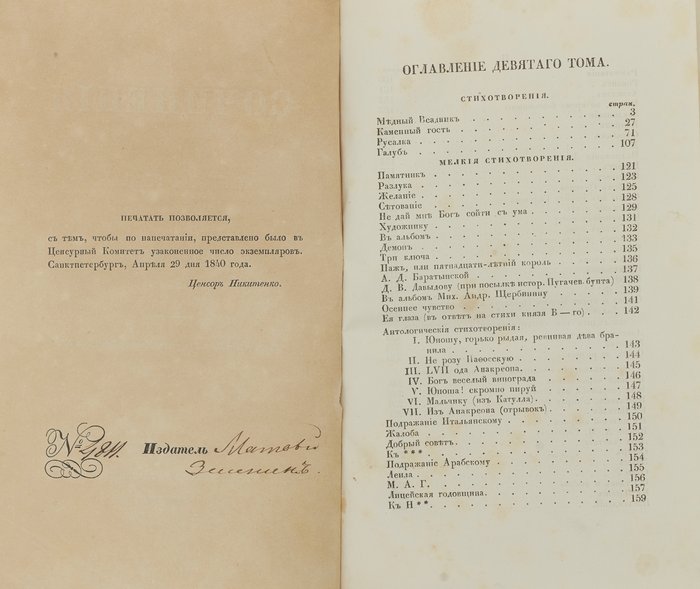 ПЕЧАТАТЬ ПОЗВОЛЯЕТСЯ,
съ тѣмъ, чтобы по напечатаніи, представлено было въ
Ценсурный Комитетъ узаконенное число экземпляровъ.
Санктпетербургъ, Апрѣля 29 дня 1840 года.
Ценсоръ Никитенко.
№ Издатель Матвѣй
ОГЛАВЛЕНІЕ ДЕВЯТАГО ТОМА.
СТИХОТВОРЕНІЯ.
стран.
Мѣдный Всадникъ . . . . . . . . 3
Каменный гость . . . . . . . . 27
Русалка . . . . . . . . 71
Галубъ . . . . . . . . 107
МЕЛКІЯ СТИХОТВОРЕНІЯ.
Памятникъ . . . . . . . . 121
Разлука . . . . . . . . 123
Желаніе . . . . . . . . 125
Сѣтованіе . . . . . . . . 128
Не дай мнѣ Богъ сойти съ ума . . . . . . 129
Художнику . . . . . . . . 131
Въ альбомъ . . . . . . . . 132
Демонъ . . . . . . . . 133
Три ключа . . . . . . . . 135
Пажъ, или пятнадцати-лѣтній король . . . . 136
А. Д. Баратынской . . . . . . 137
Д. В. Давыдову (при посылкѣ истор. Пугачев. бунта) 138
Въ альбомъ Мих. Андр. Щербинину . . . . 139
Осеннее чувство . . . . . . 141
Ея глаза (въ отвѣтъ на стихи князя В—го) . . . 142
Антологическія стихотворенія:
I. Юношу, горько рыдая, ревнивая дѣва бра-
нила . . . . . . . . 143
II. Не розу Паѳосскую . . . . . . 144
III. LVII ода Анакреона . . . . . . 145
IV. Богъ веселый винограда . . . . . 146
V. Юноша! скромно пируй . . . . . 147
VI. Мальчику (изъ Катулла) . . . . . 148
VII. Изъ Анакреона (отрывокъ) . . . . 149
Подражаніе Итальянскому . . . . . . 150
Жалоба . . . . . . . . 151
Добрый совѣтъ . . . . . . . . 152
Къ *** . . . . . . . . 153
Подражаніе Арабскому . . . . . . 154
Леила . . . . . . . . 155
М. А. Г. . . . . . . . . 156
Лицейская годовщина . . . . . . 157
Къ Н** . . . . . . . . 159